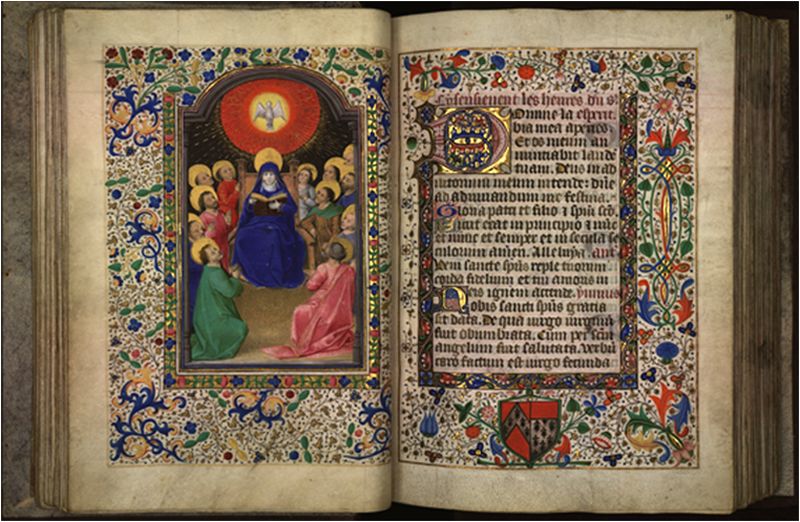 Cy sensieuent les heures du st
Domine la esprit.
bia mea aperies.
Et os meum an
nunciabit laude
tuam. Deus in ad
iutorium meum intende: dne
ad adiuuandum me festina.
Gloria patri et filio & spiri sco
Sicut erat in principio & nuc
et nunc et semper et in secula se
culorum amen. Alleluya. ant
Veni sancte spus reple tuorum
corda fidelium et tui amoris in
eis ignem accende. ymnus
Nobis sancti spus gratia
sit data. De qua uirgo uirginu
fuit obumbrata. Cum per scm
angelum fuit salutata. Verbu
caro factum est uirgo fecunda